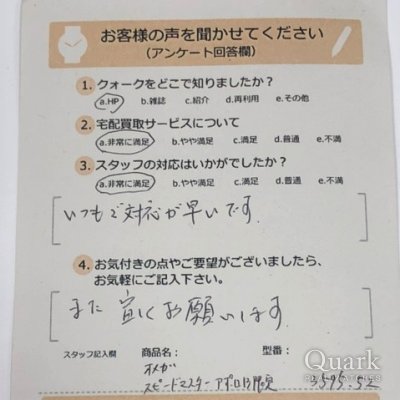 お客様の声を聞かせてください
(アンケート回答欄)
1. クォークをどこで知りましたか?
a.HP b.雑誌 c.紹介 d.再利用 e.その他
2. 宅配買取サービスについて
a.非常に満足 b.やや満足 c.満足 d.普通 e.不満
3. スタッフの対応はいかがでしたか?
a.非常に満足 b.やや満足 c.満足 d.普通 e.不満
いつもご対応が早いです。
4. お気付きの点やご要望がございましたら、
お気軽にご記入下さい。
また宜しくお願いします
スタッフ記入欄 商品名: 型番:
オメガ
スピードマスター アポロ13限定 3595.52
Quark